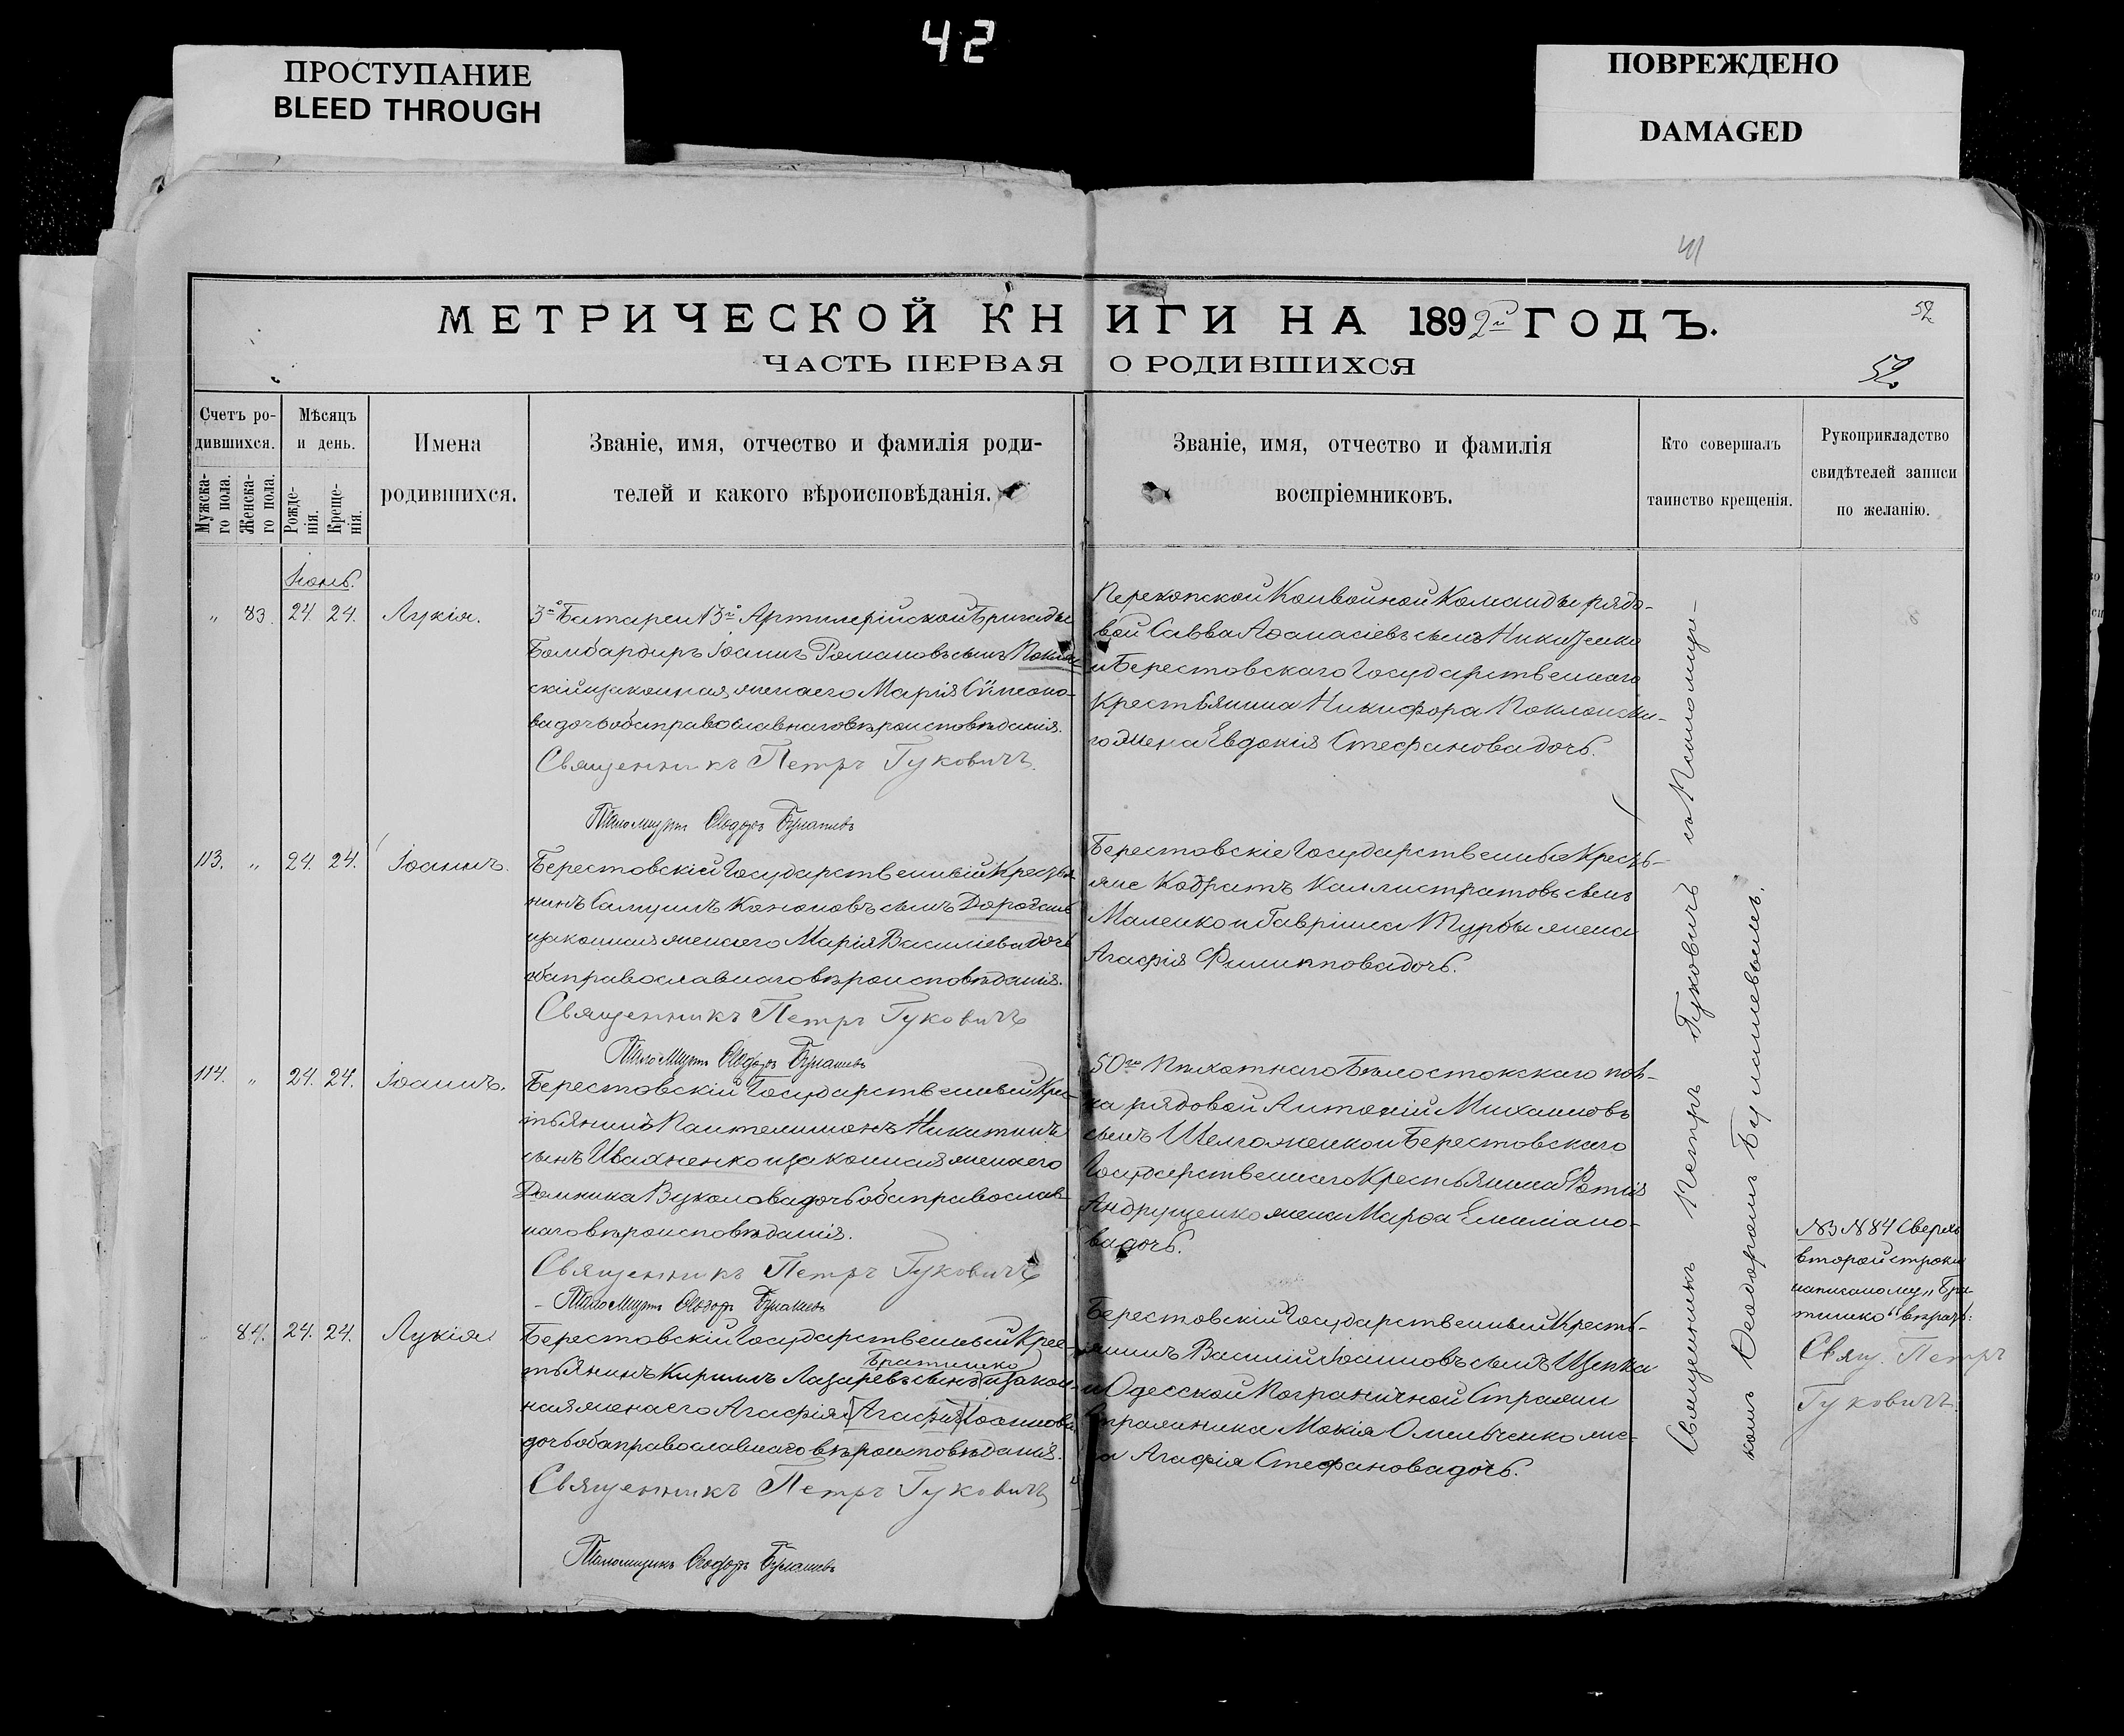 42
ПРОСТУПАНИЕ
BLEED THROUGH
ПОВРЕЖДЕНО
DAMAGED
41
МЕТРИЧЕСКОЙ КНИГИ НА 1892й ГОДЪ.
52
ЧАСТЬ ПЕРВАЯ О РОДИВШИХСЯ
52
Счетъ ро-
дившихся.
Мужска-
го пола.
Женска-
го пола.
Мѣсяцъ
и день.
Рожде-
нія.
Креще-
нія.
Имена
родившихся.
Званіе, имя, отчество и фамилія роди-
телей и какого вѣроисповѣданія.
Званіе, имя, отчество и фамилія
воспріемниковъ.
Кто совершалъ
таинство крещенія.
Рукоприкладство
свидѣтелей записи
по желанію.
Іюнь.
" 83. 24. 24. Лукія.
3й Батареи 13й Артилерійской Бригады
Бомбардиръ Іоаннъ Романовъ сынъ
скій и законная жена его Марія Сѵмеоно-
ва дочь оба православнаго вѣроисповѣданія.
Священникъ Петръ Гуковичъ.
Псаломщикъ Ѳеодоръ
Перекопской Конвойной Команды рядо-
вой Савва Аѳанасіевъ сынъ Никитенко
и Берестовскаго Государственнаго
Крестьянина Никифора Поклонска-
го жена Евдокія Стефанова дочь.
113. " 24. 24. Іоаннъ.
Берестовскій Государственный Крестья-
нинъ Самуилъ Кононовъ сынъ
и законная жена его Марія Василіева дочь
оба православнаго вѣроисповѣданія.
Священникъ Петръ Гуковичъ
Псаломщикъ Ѳеодоръ
Берестовскіе Государственные Кресть-
яне Кодратъ Каллистратовъ сынъ
Маленко и Гавріила Турбы жена
Агафія Филиппова дочь.
114. " 24. 24. Іоаннъ.
Берестовскій Государственный Крес-
тьянинъ Пантелимонъ Никитинъ
сынъ Ивахненко и законная жена его
Домника Вуколова дочь оба православ-
наго вѣроисповѣданія.
Священникъ Петръ Гуковичъ
Псаломщикъ Ѳеодоръ
50го Пѣхотнаго Бѣлостокскаго пол-
ка рядовой Антоній Михаиловъ
сынъ и Берестовскаго
Государственнаго Крестьянина Фотія
Андрущенко жена Марѳа Емиліано-
ва дочь.
" 84. 24. 24. Лукія
Берестовскій Государственный Крес-
Братишко
тьянинъ Кириллъ Лазаревъ сынъ и закон-
ная жена его Агафія (Агафія) Іоаннова
дочь оба православнаго вѣроисповѣданія.
Священникъ Петръ Гуковичъ
Псаломщикъ Ѳеодоръ
Берестовскій Государственный Кресть-
янинъ Василій Іоанновъ сынъ Щепка
и Одесской Пограничной Стражи
стражника Мокія Омельченко же-
на Агафія Стефанова дочь.
Священникъ Петръ Гуковичъ съ Псаломщи-
комъ Ѳеодоромъ
№ 84 Сверхъ
второй строки
написаному "Бра-
тишко" вѣрить:
Свящ. Петръ
Гуковичъ.